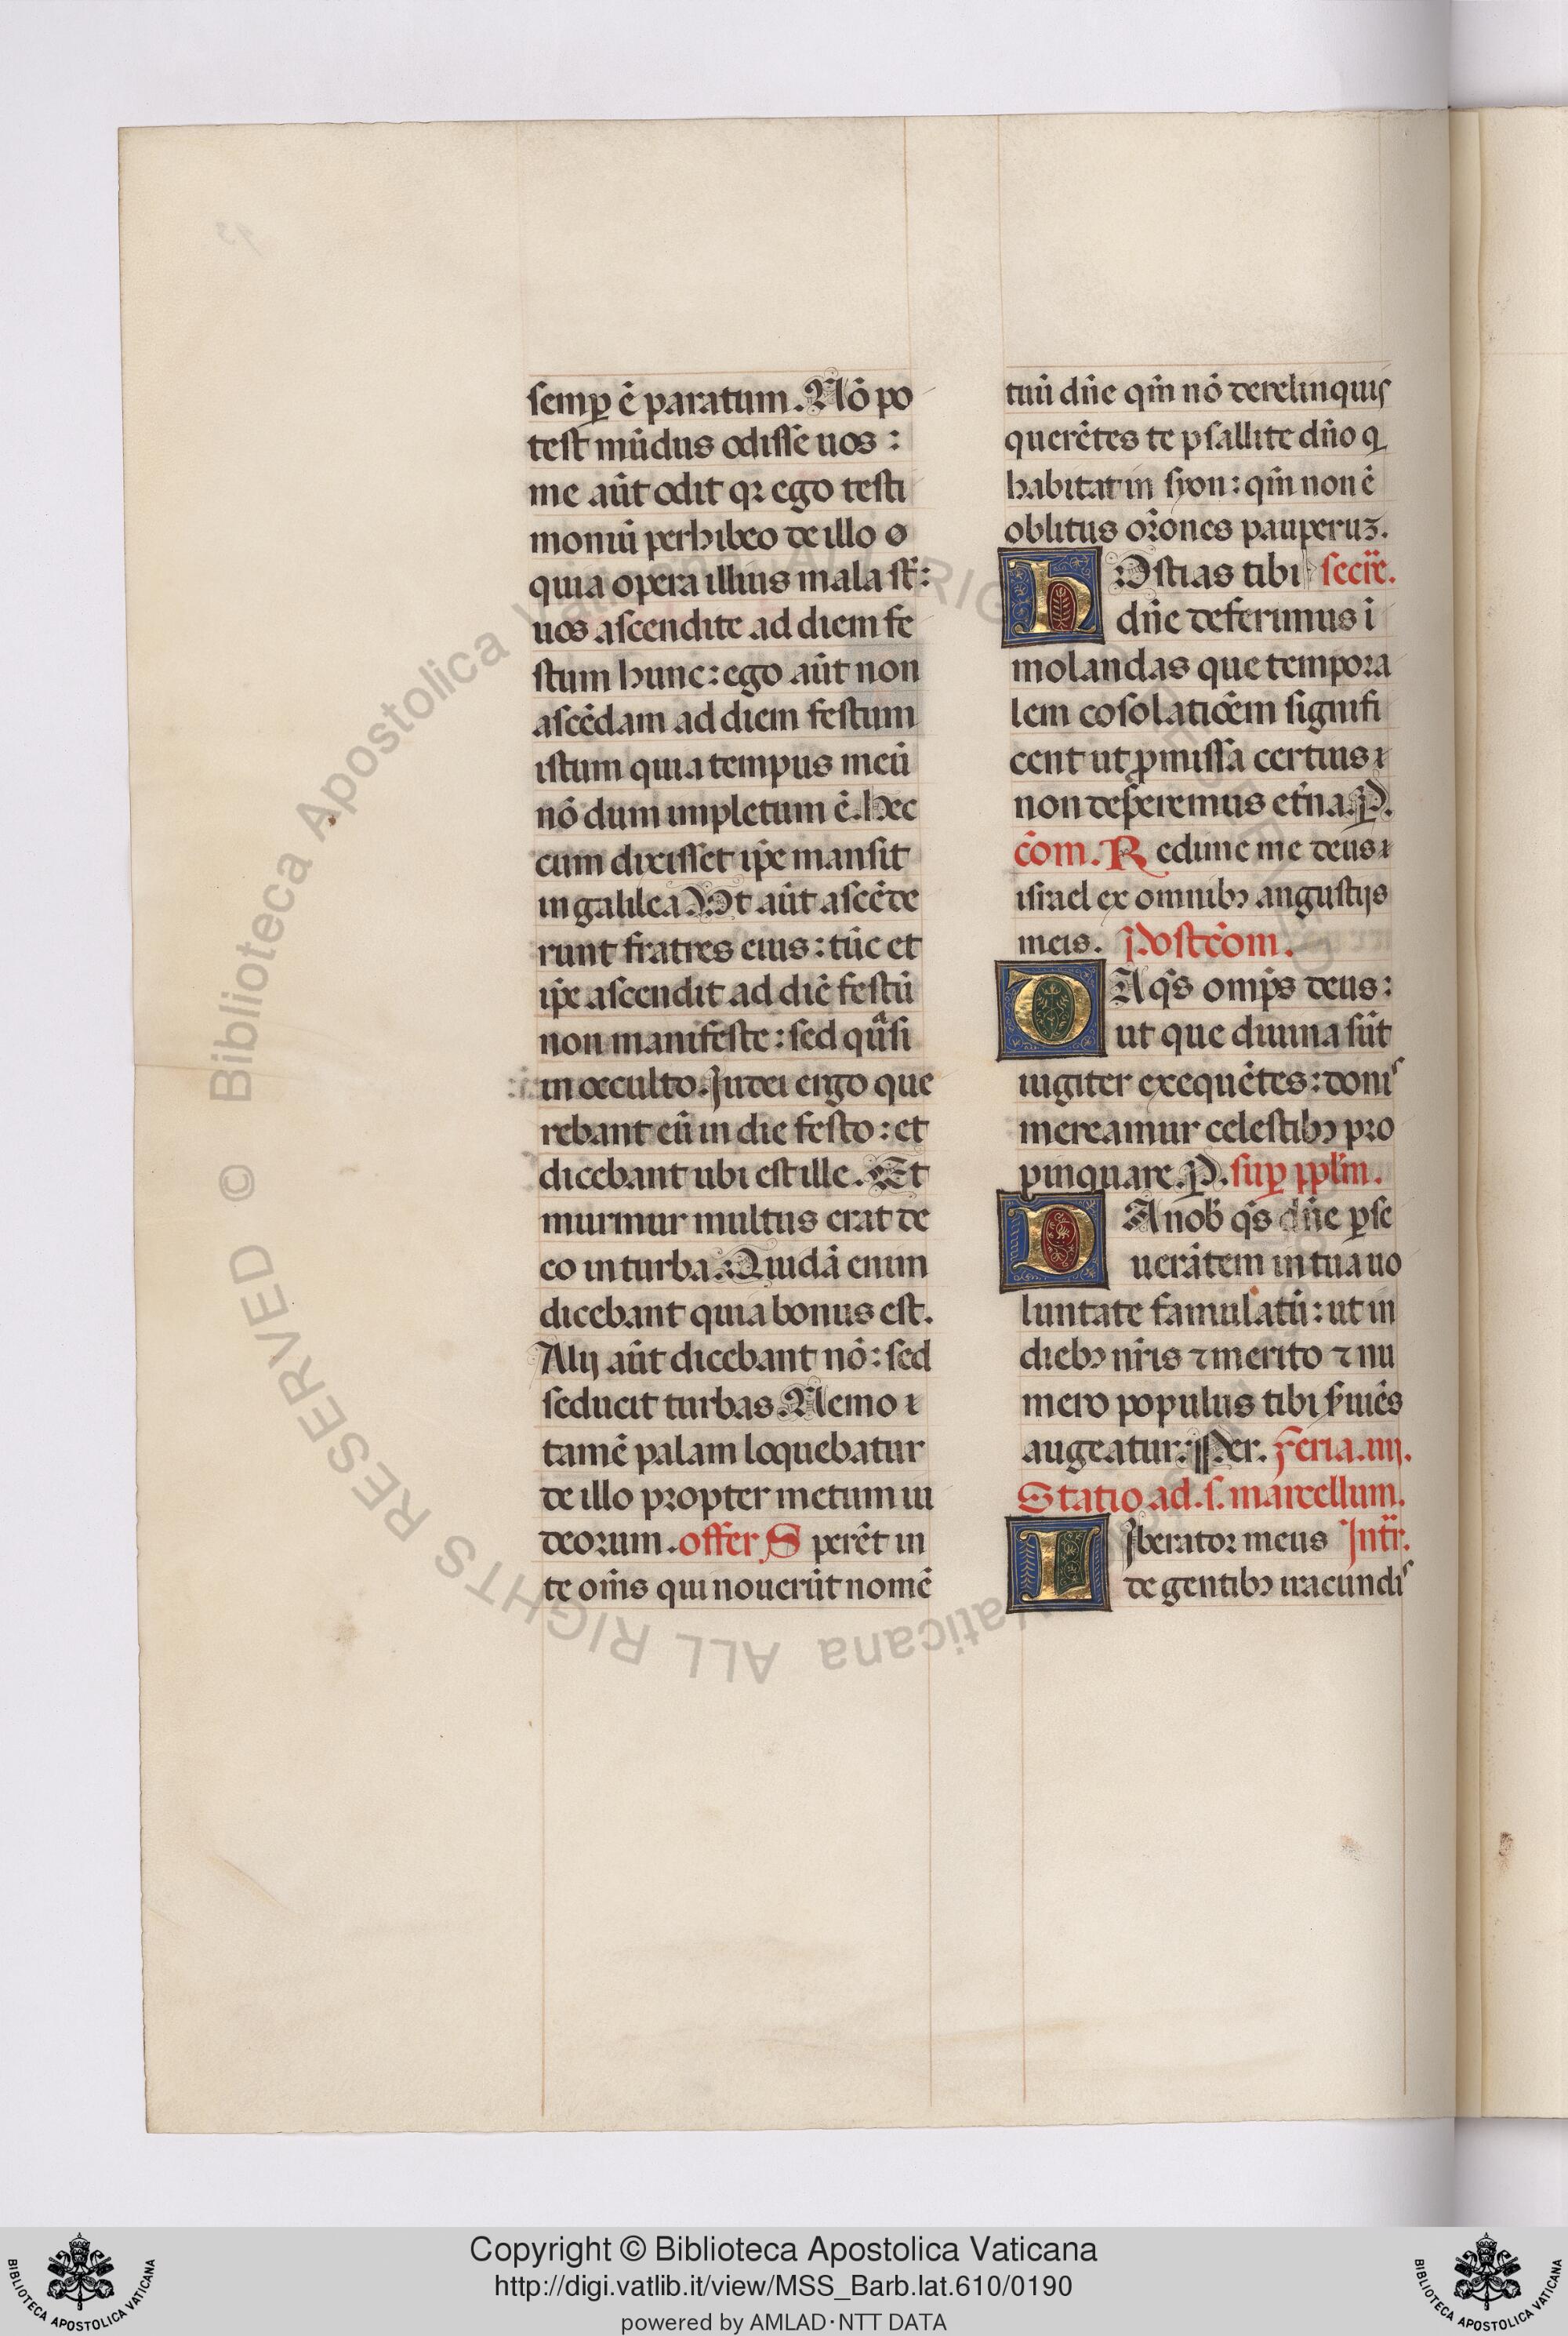 semꝑ ē paratum. Nō po
test mūdus odisse uos :
me aūt odit qꝛ ego testi
moniū perhibeo de illo ꝙ
quia opera illius mala st̄ :
uos ascendite ad diem fe
stum hunc : ego aūt non
ascēdam ad diem festum
istum quia tempus meū
nō dum impletum ē. Hec
cum dixisset ip̄e mansit
in galilea. Ut aūt ascēde
runt fratres eius : tūc et
ip̄e ascendit ad diē festū
non manifeste : sed quᵃsi
in occulto. Judei ergo que
rebant eū in die festo : et
dicebant ubi est ille. Et
murmur multus erat de
eo in turba. Quidā enim
dicebant quia bonus est.
Alij aūt dicebant nō : sed
seducit turbas. Nemo ı
tamē palam loquebatur
de illo propter metum iu
deorum. offer. Sperēt in
te om̄s qui nouerūt nomē
tuū dn̄e qm̄ nō derelinquis
querētes te psallite dn̄o q̨
habitat in syon : qm̄ non ē
oblitus or̄ones pauperuꝫ.
HOstias tibi secr̄e.
dn̄e deferimus i
molandas que tempora
lem cōsolatiōem signifi
cent ut ꝓmissa certius ı
non desperemus et̄na. P.
cōm. Redime me deus ı
israel ex omnibꝰ angustijs
meis. Postcōm.
DA qs̄ omp̄s deus :
ut que diuina sūt
iugiter exequētes : donis
mereamur celestibꝰ pro
pinquare. P. suꝑ pplm̄.
DA nob̄ qs̄ dn̄e ꝑse
uerātem in tua uo
luntate famulatū : ut in
diebꝰ nr̄is ⁊ merito ⁊ nu
mero populus tibi s̄uiēs
augeatur. Per. Feria .iiij.
Statio ad .s. marcellum.
LIberator meus Intr̄.
de gentibꝰ iracundis
© Biblioteca Apostolica Vaticana ALL RIGHTS RESERVED
Copyright © Biblioteca Apostolica Vaticana
http://digi.vatlib.it/view/MSS_Barb.lat.610/0190
powered by AMLAD·NTT DATA
BIBLIOTECA APOSTOLICA VATICANA
BIBLIOTECA APOSTOLICA VATICANA